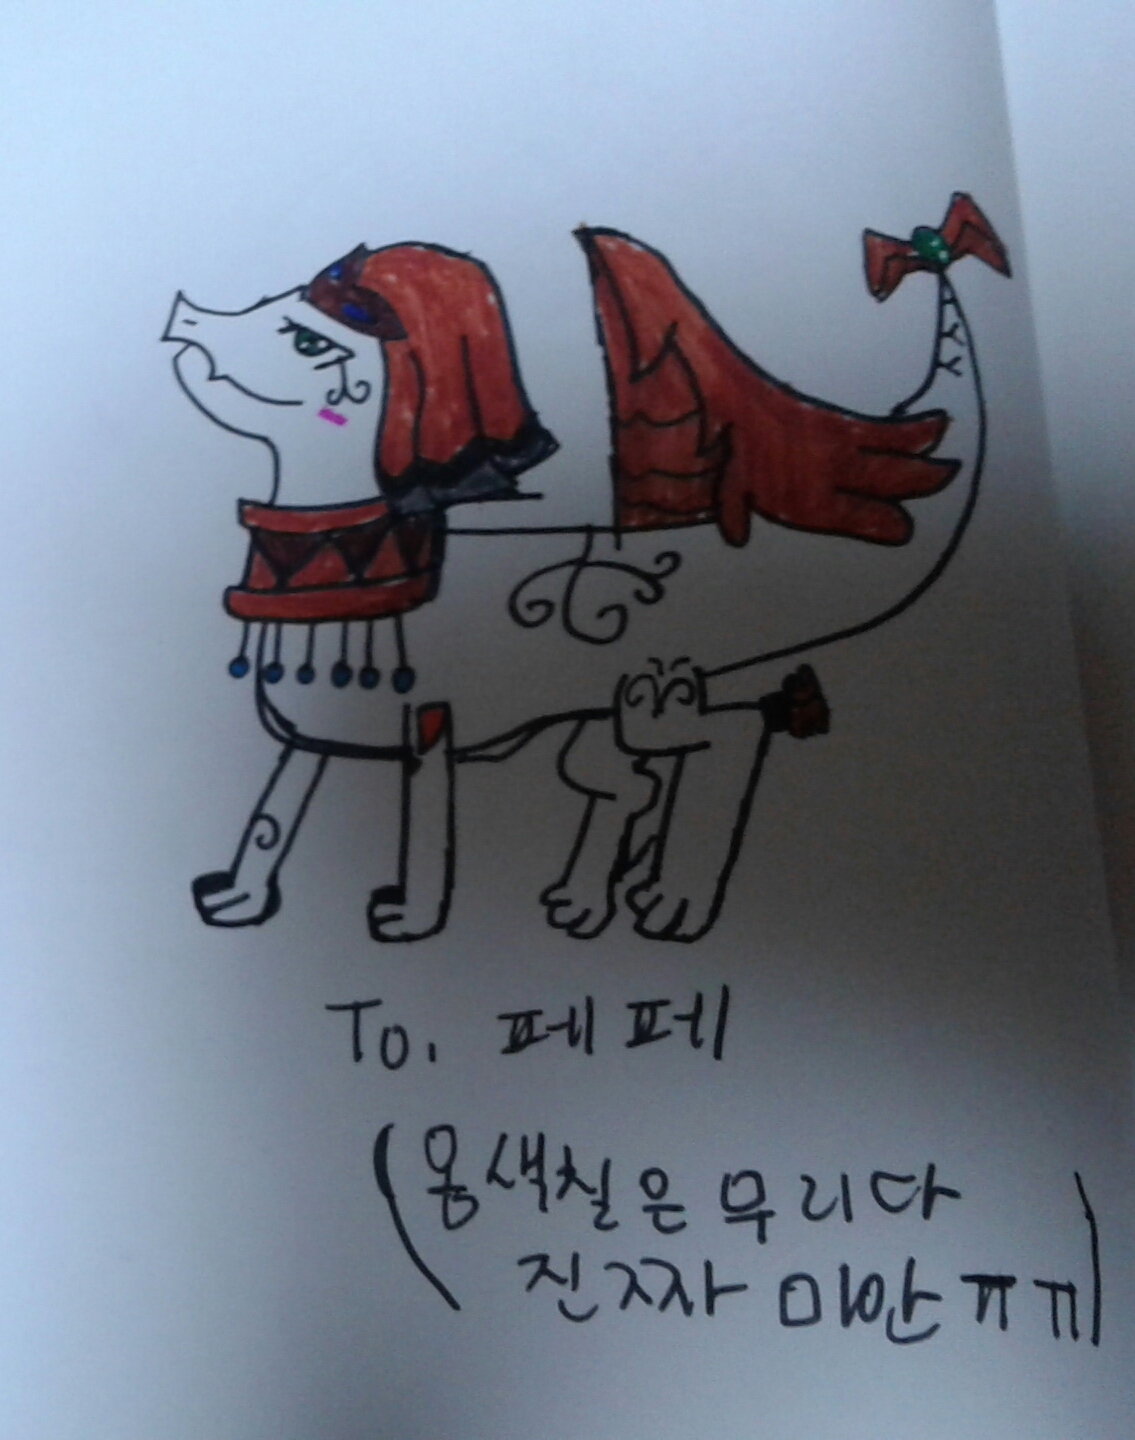 To. 페페
(몸색칠은 무리다
진짜 미안 ㅠㅠ)